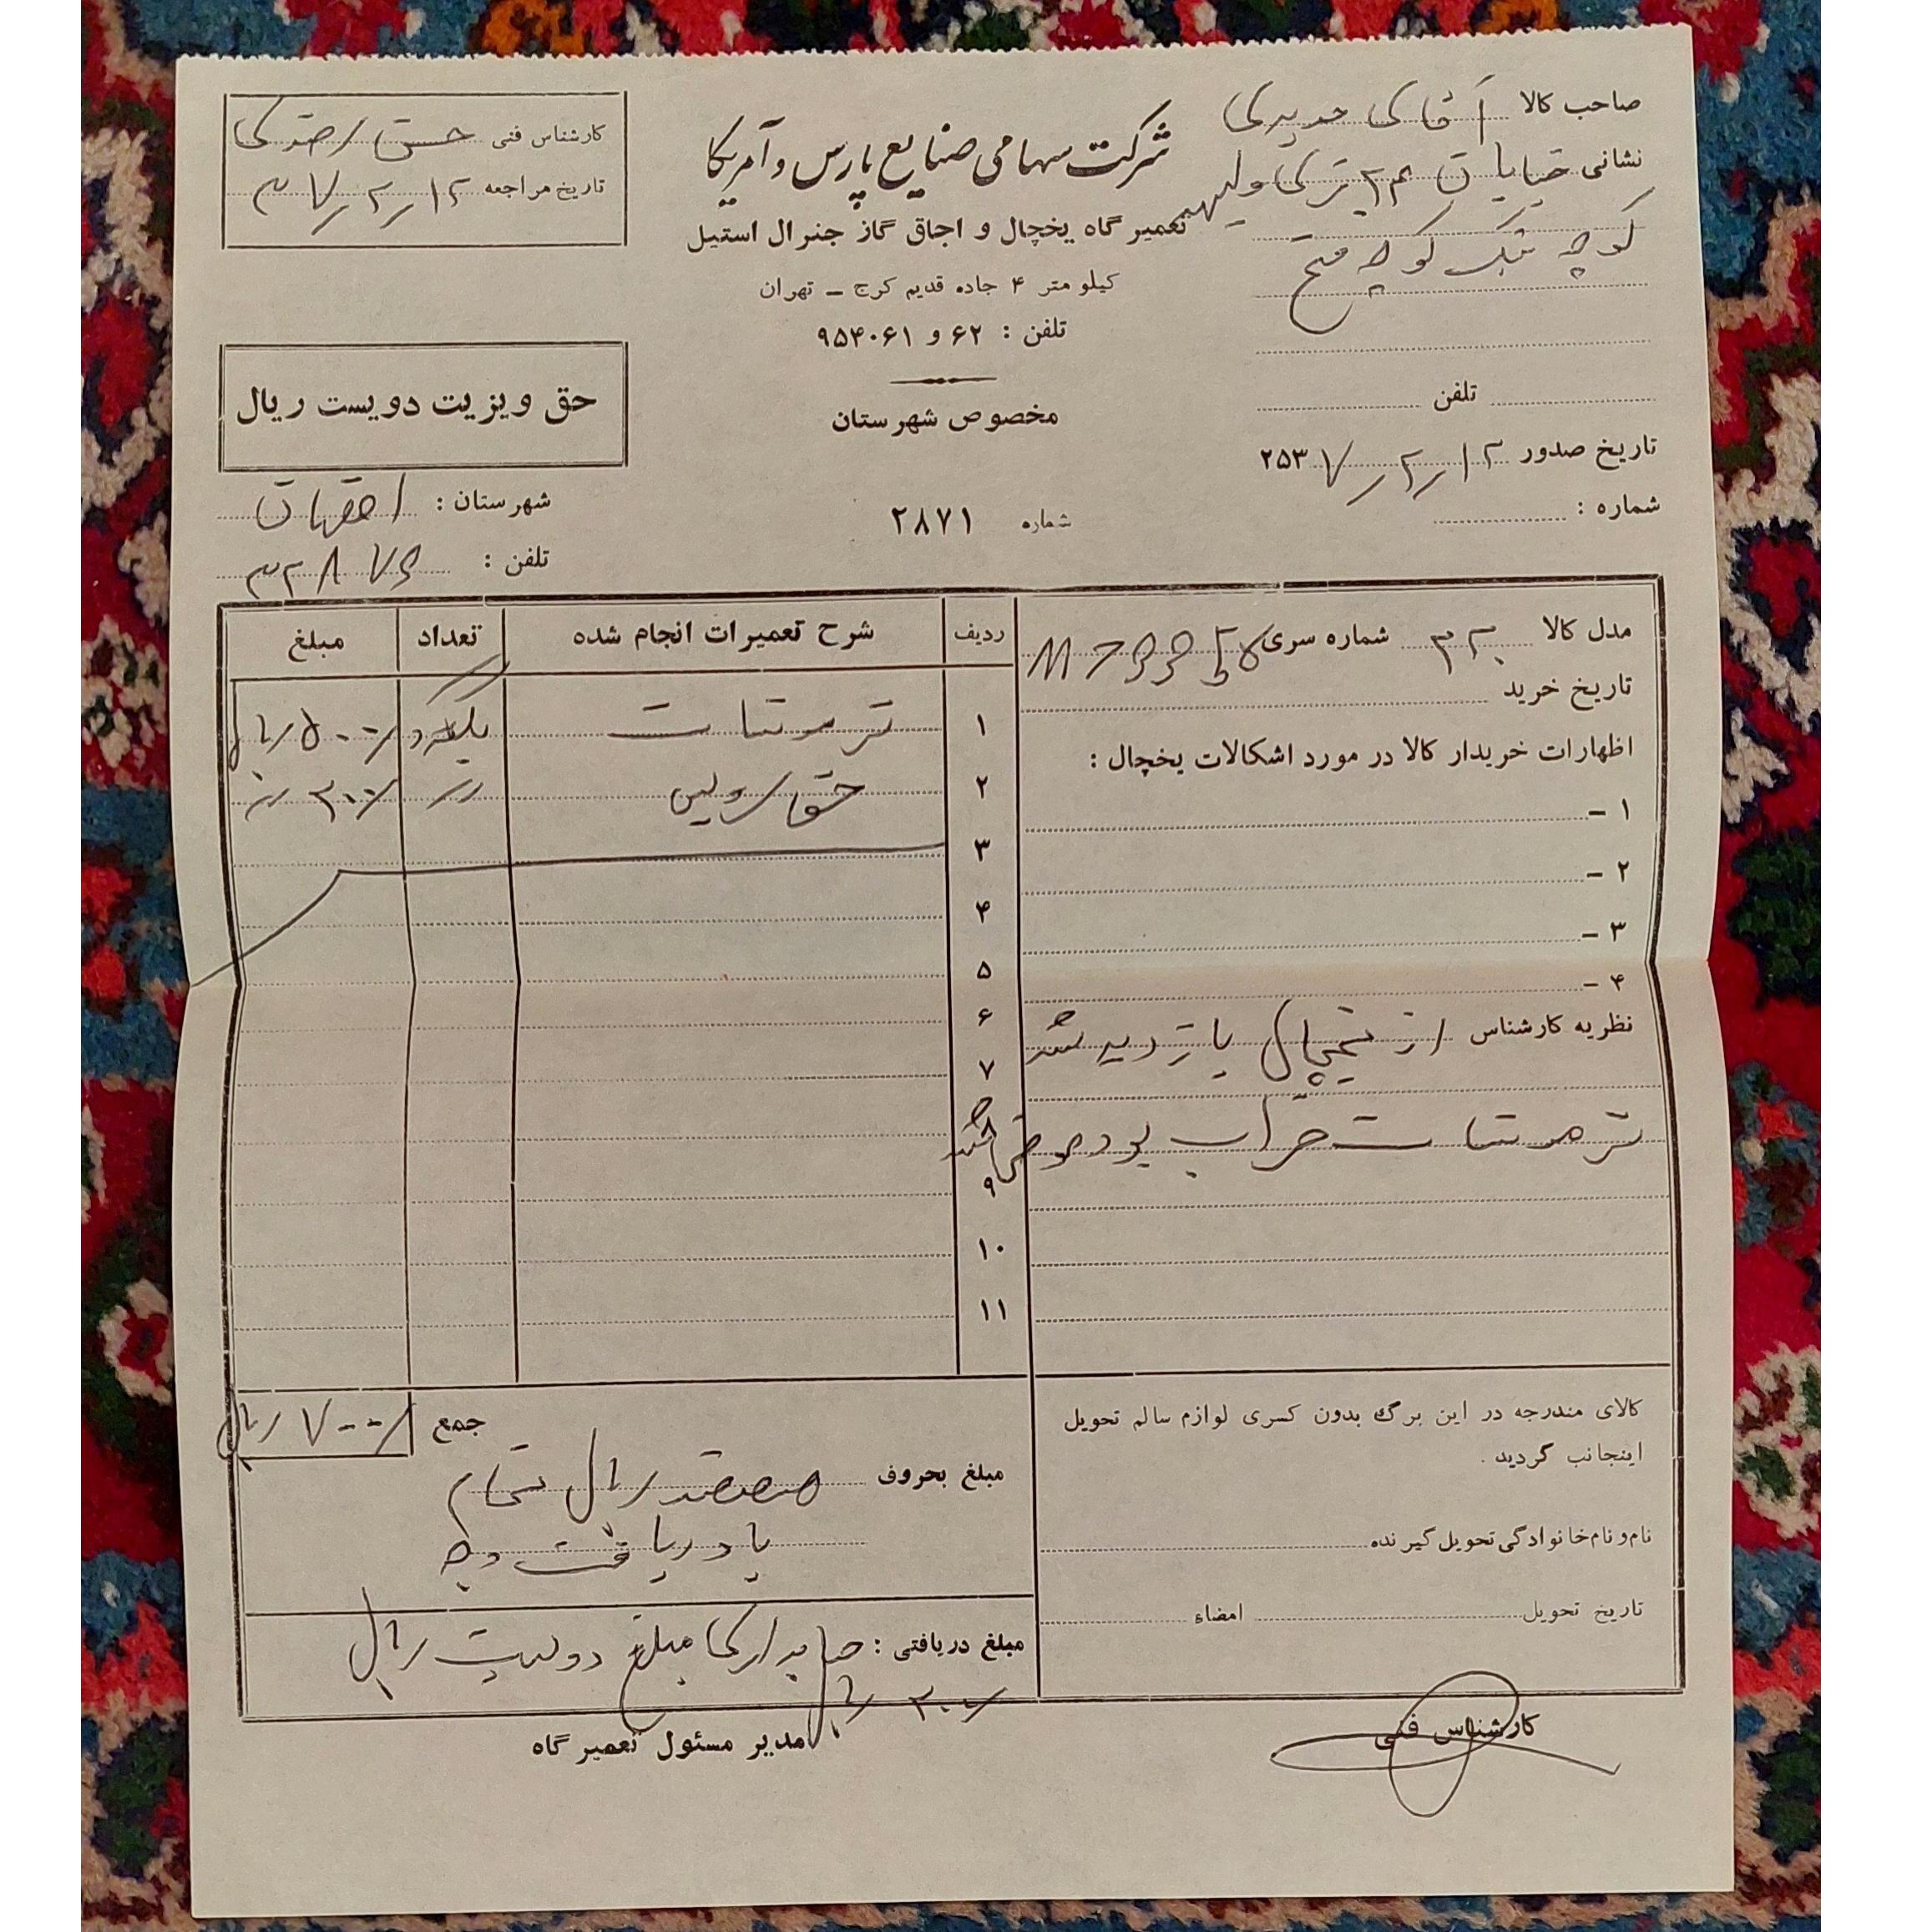 صاحب کالا آقای حدیدی
نشانی خیابان ۲۴ متری ولیعهد
کوچه تنگ کوچه فتح
تلفن
تاریخ صدور ۲۵۳۷/۲/۱۲
شماره :
شرکت سهامی صنایع پارس و آمریکا
تعمیر گاه یخچال و اجاق گاز جنرال استیل
کیلو متر ۴ جاده قدیم کرج ــ تهران
تلفن : ۶۲ و ۹۵۴۰۶۱
مخصوص شهرستان
شماره ۲۸۷۱
کارشناس فنی حسن
تاریخ مراجعه ۳۷/۲/۱۲
حق ویزیت دویست ریال
شهرستان : اصفهان
تلفن : ۳۲۸۷۶
مدل کالا شماره سری
تاریخ خرید
اظهارات خریدار کالا در مورد اشکالات یخچال :
۱ -
۲ -
۳ -
۴ -
نظریه کارشناس از یخچال بازدید شد
ترموستات خراب بود تعویض شد
کالای مندرجه در این برگ بدون کسری لوازم سالم تحویل
اینجانب گردید .
نام و نام خانوادگی تحویل گیرنده
تاریخ تحویل امضاء
کارشناس فنی
ردیف شرح تعمیرات انجام شده تعداد مبلغ
۱ ترموستات یکعدد ۵۰۰/- ریال
۲ حق سرویس // ۲۰۰/-
۳
۴
۵
۶
۷
۸
۹
۱۰
۱۱
جمع ۷۰۰/- ریال
مبلغ بحروف هفتصد ریال تمام
با دریافت وجه
مبلغ دریافتی : مبلغ دویست ریال
۲۰۰/- ریال
مدیر مسئول تعمیر گاه